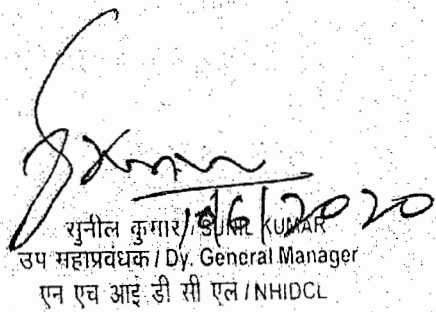 सुनील कुमार / SUNIL KUMAR
उप महाप्रबंधक / Dy. General Manager
एन एच आई डी सी एल / NHIDCL